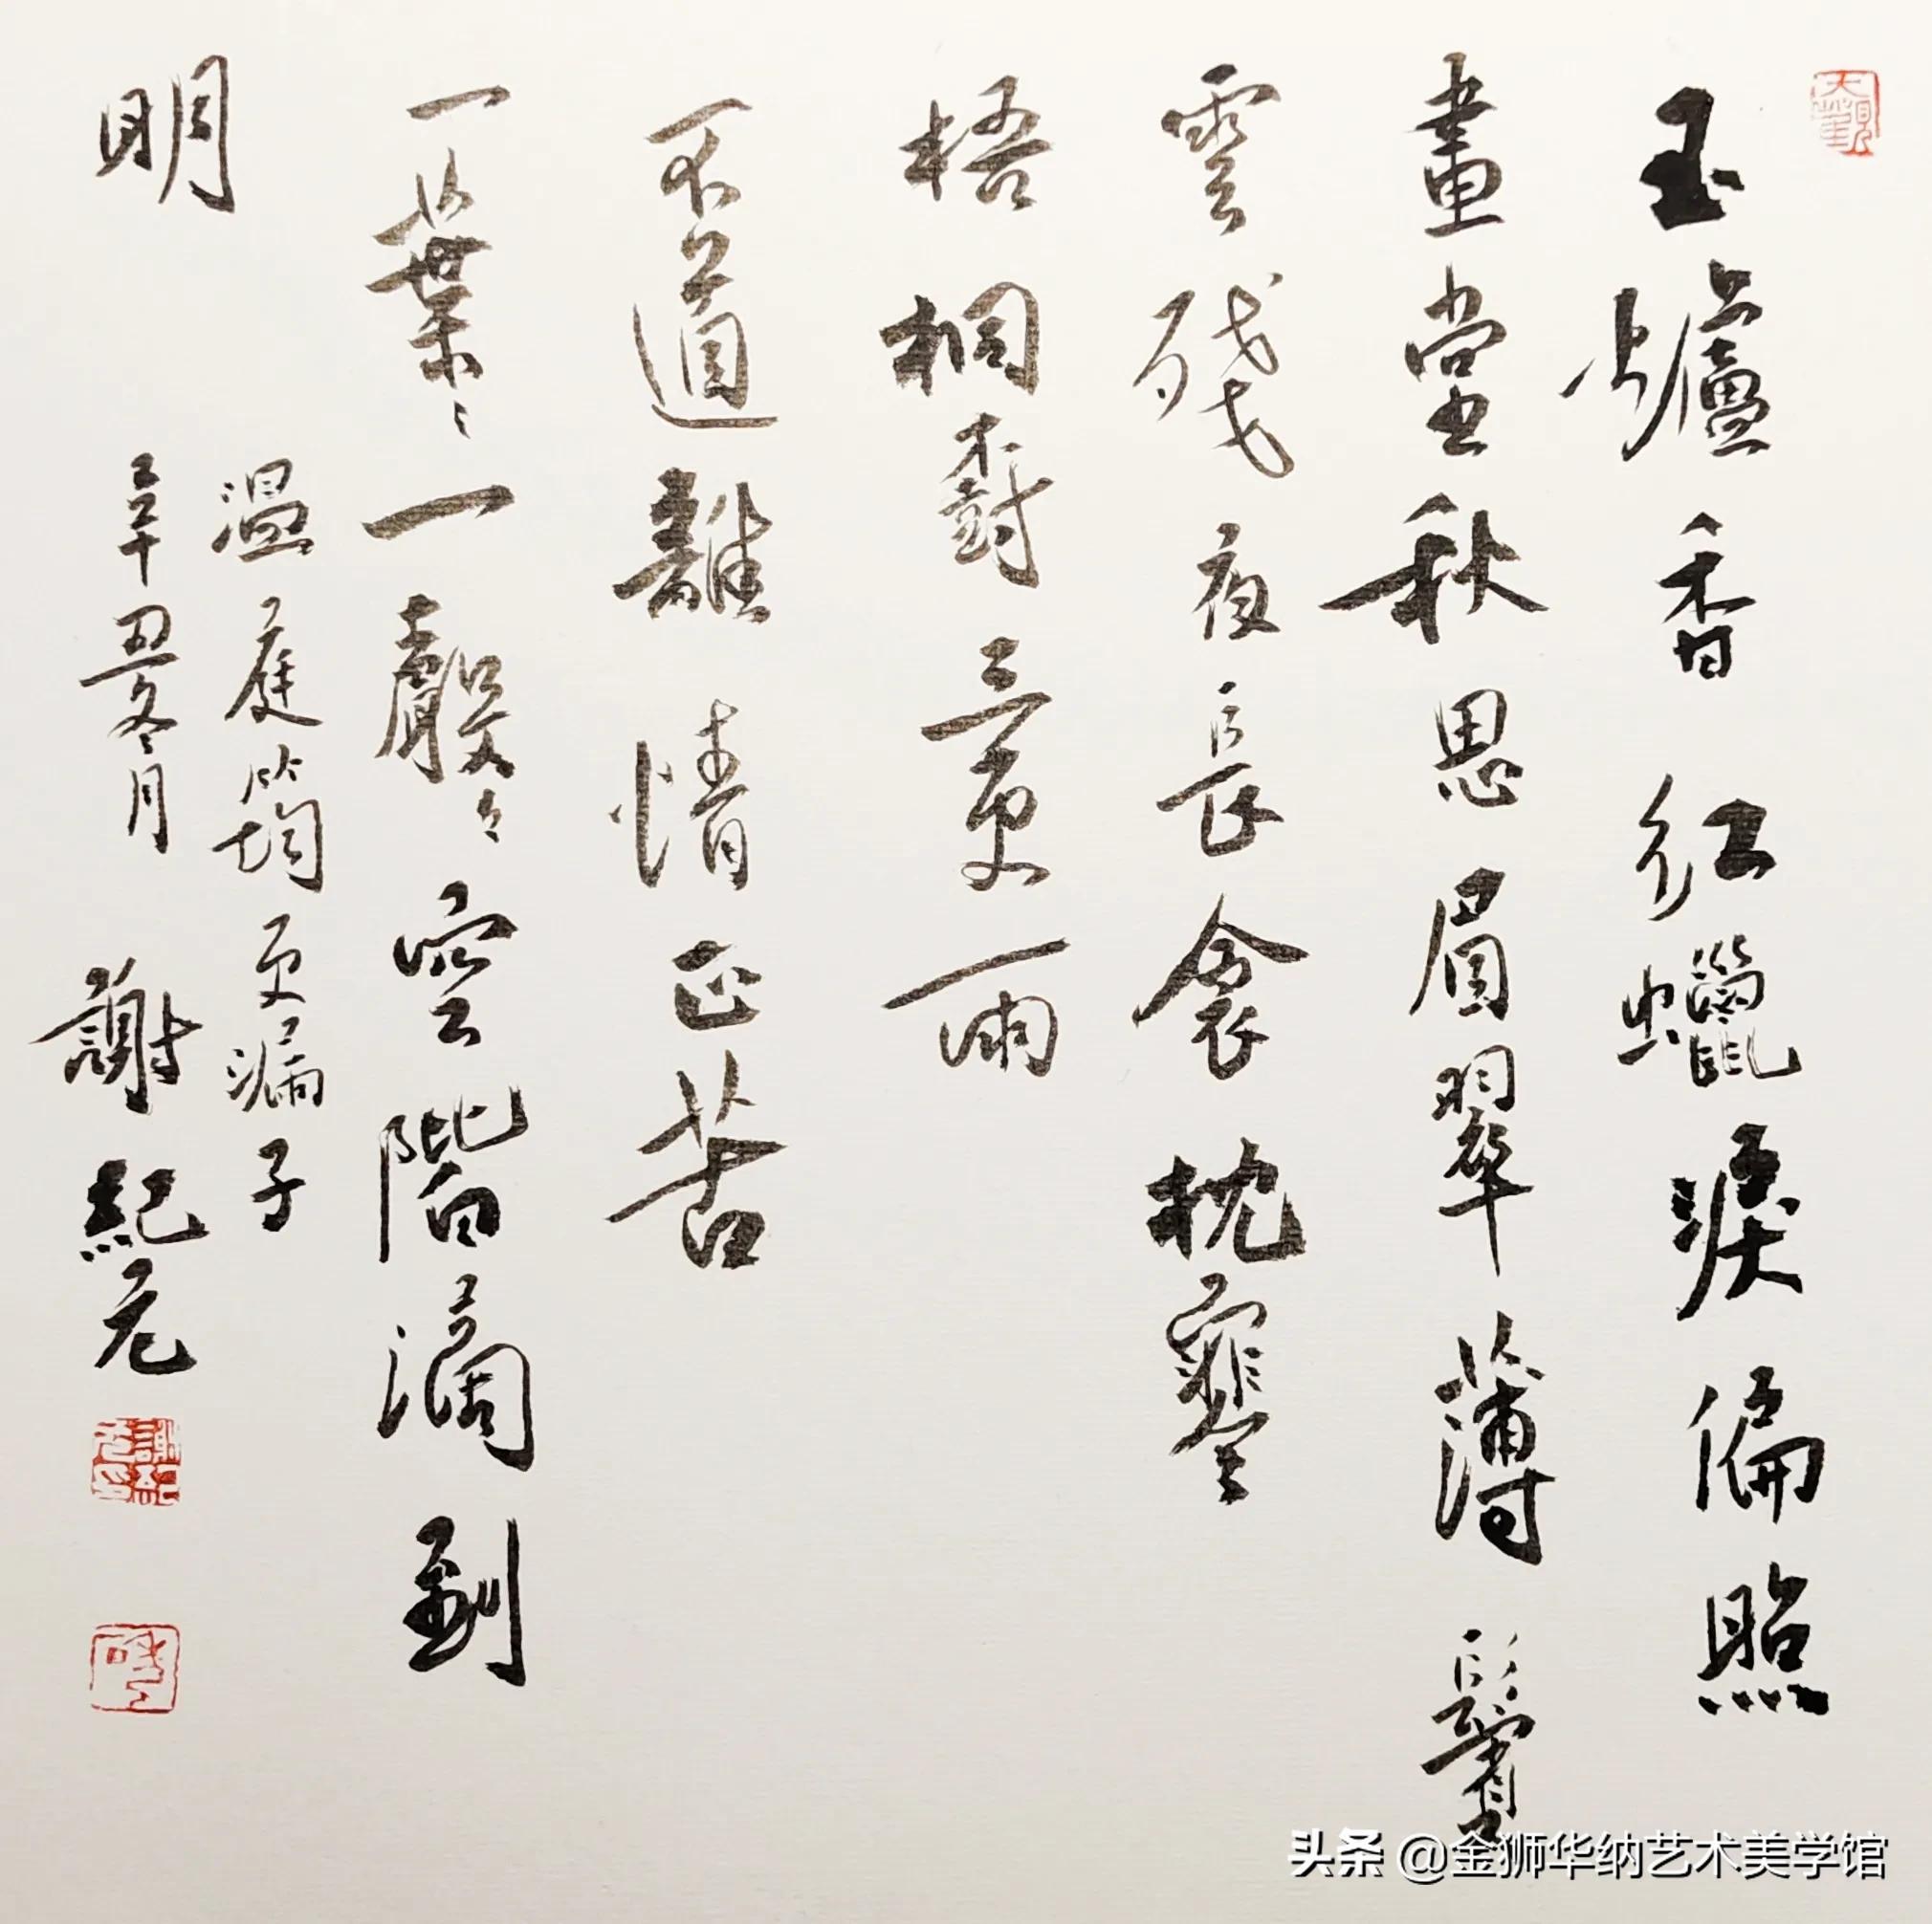 玉爐香紅蠟淚偏照
畫堂秋思眉翠薄鬢
雲殘夜長衾枕寒
梧桐樹三更雨
不道離情正苦
一葉〻一聲〻空階滴到
明
溫庭筠更漏子
辛丑冬月 謝紀元
大觀
謝紀元印
头条 @金狮华纳艺术美学馆